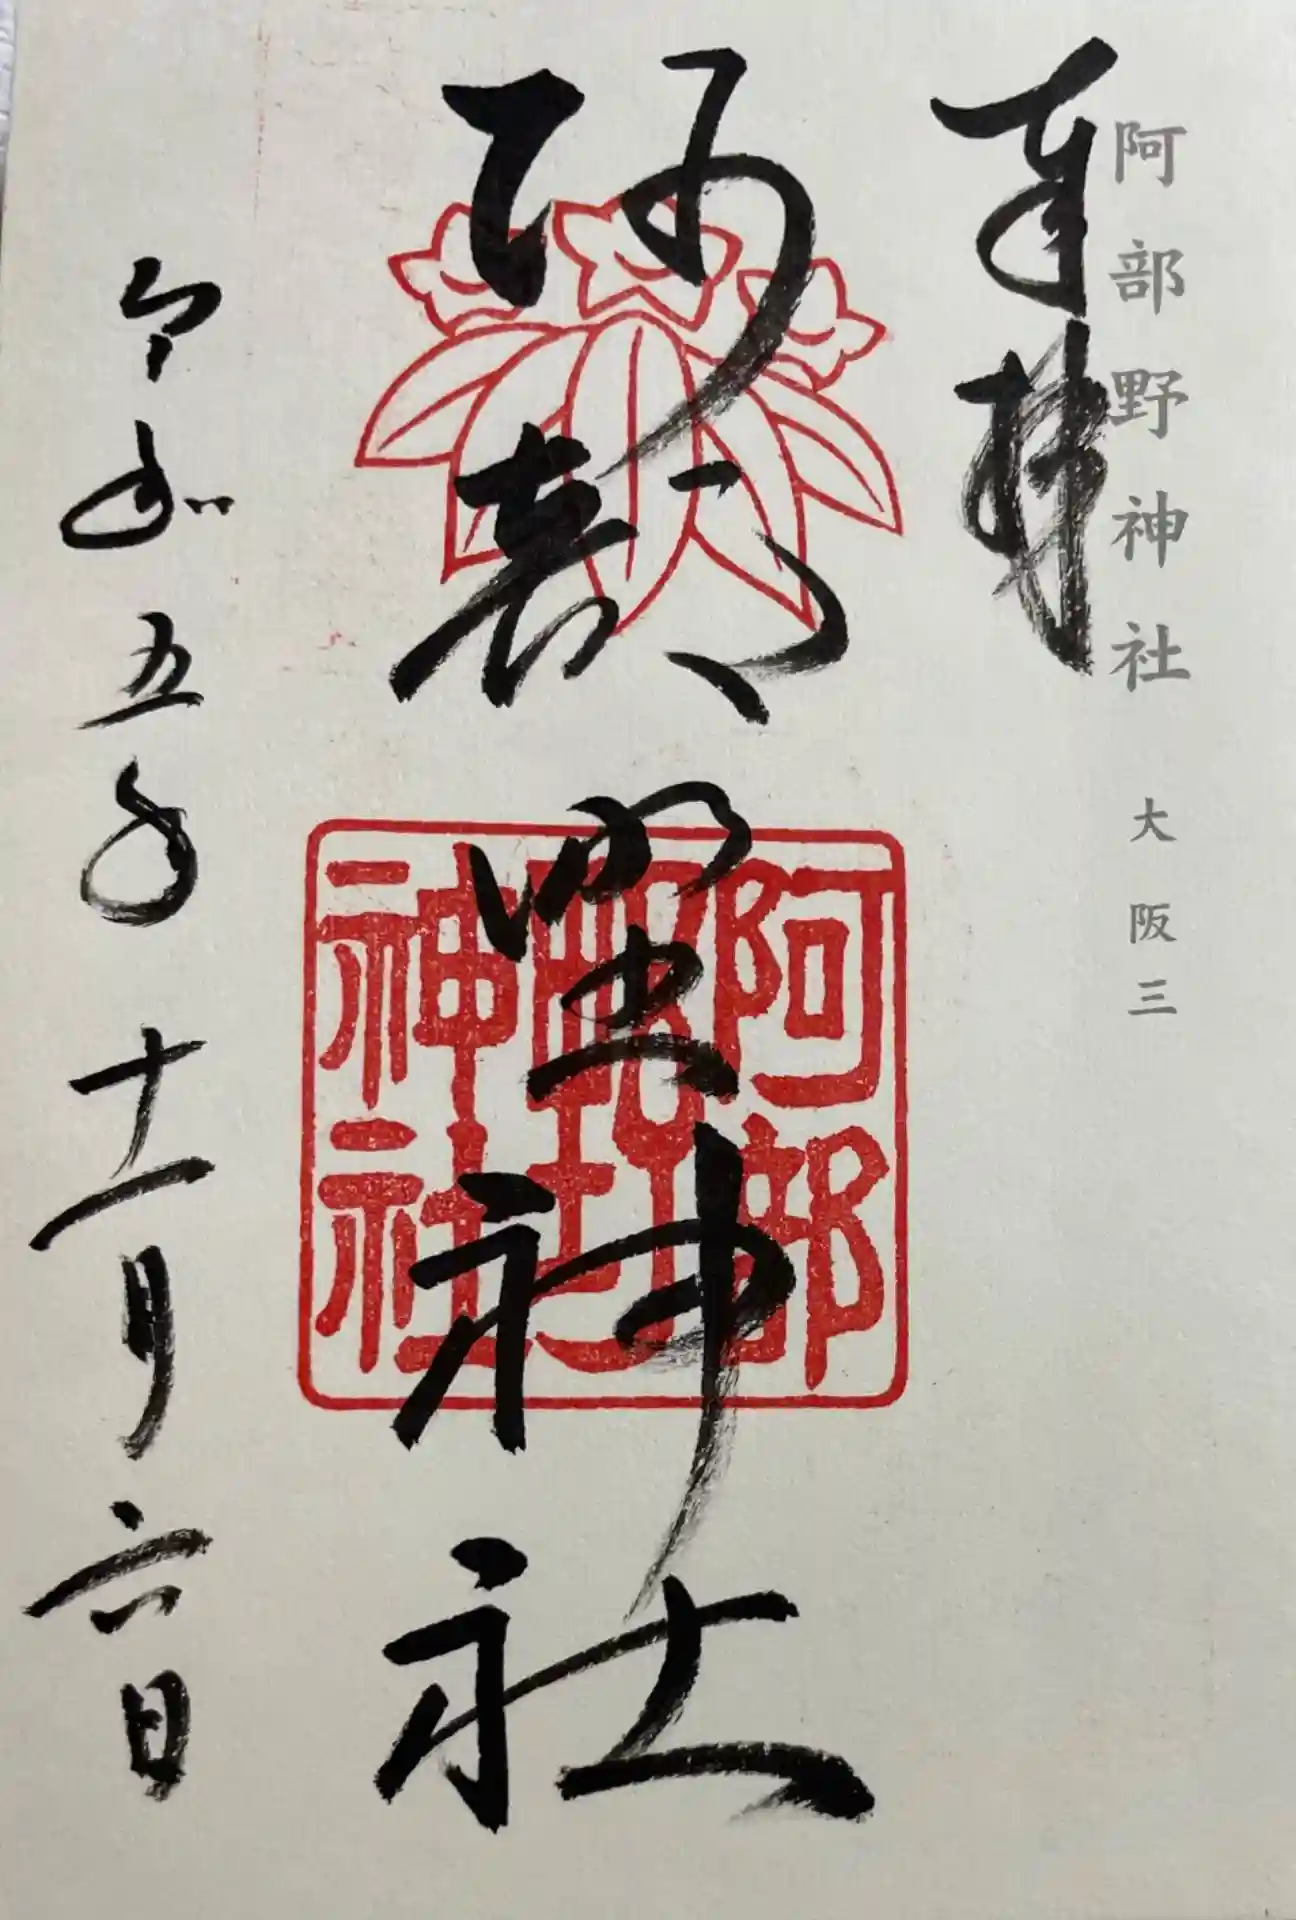 阿部野神社 大阪三
奉拝
阿部野神社
阿部
野
神社
令和五年十一月六日